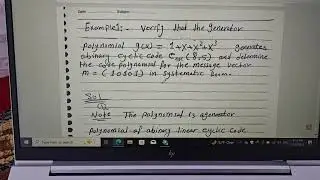 Date: Subject:
Example1:- Verify that the generator
polynomial g(x) = 1+x+x²+x³ generates
abinary cyclic code C (8,5) and determine
the code polynomial for the message vector
m = (10101) in systematic form.
Sol
Note The polynomial is agenerator
polynomial of abinary linear cyclic code
hp